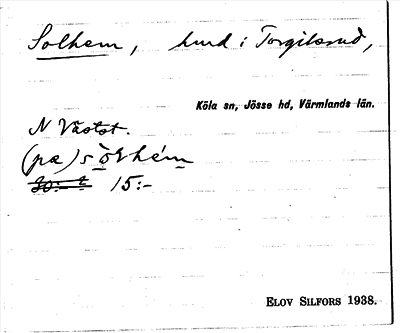 Solhem, hmd i Torgilsrud,
Köla sn, Jösse hd, Värmlands län.
N Västst.
(pæ) sòɤhém
30:- 2 15:-
ELOV SILFORS 1938.